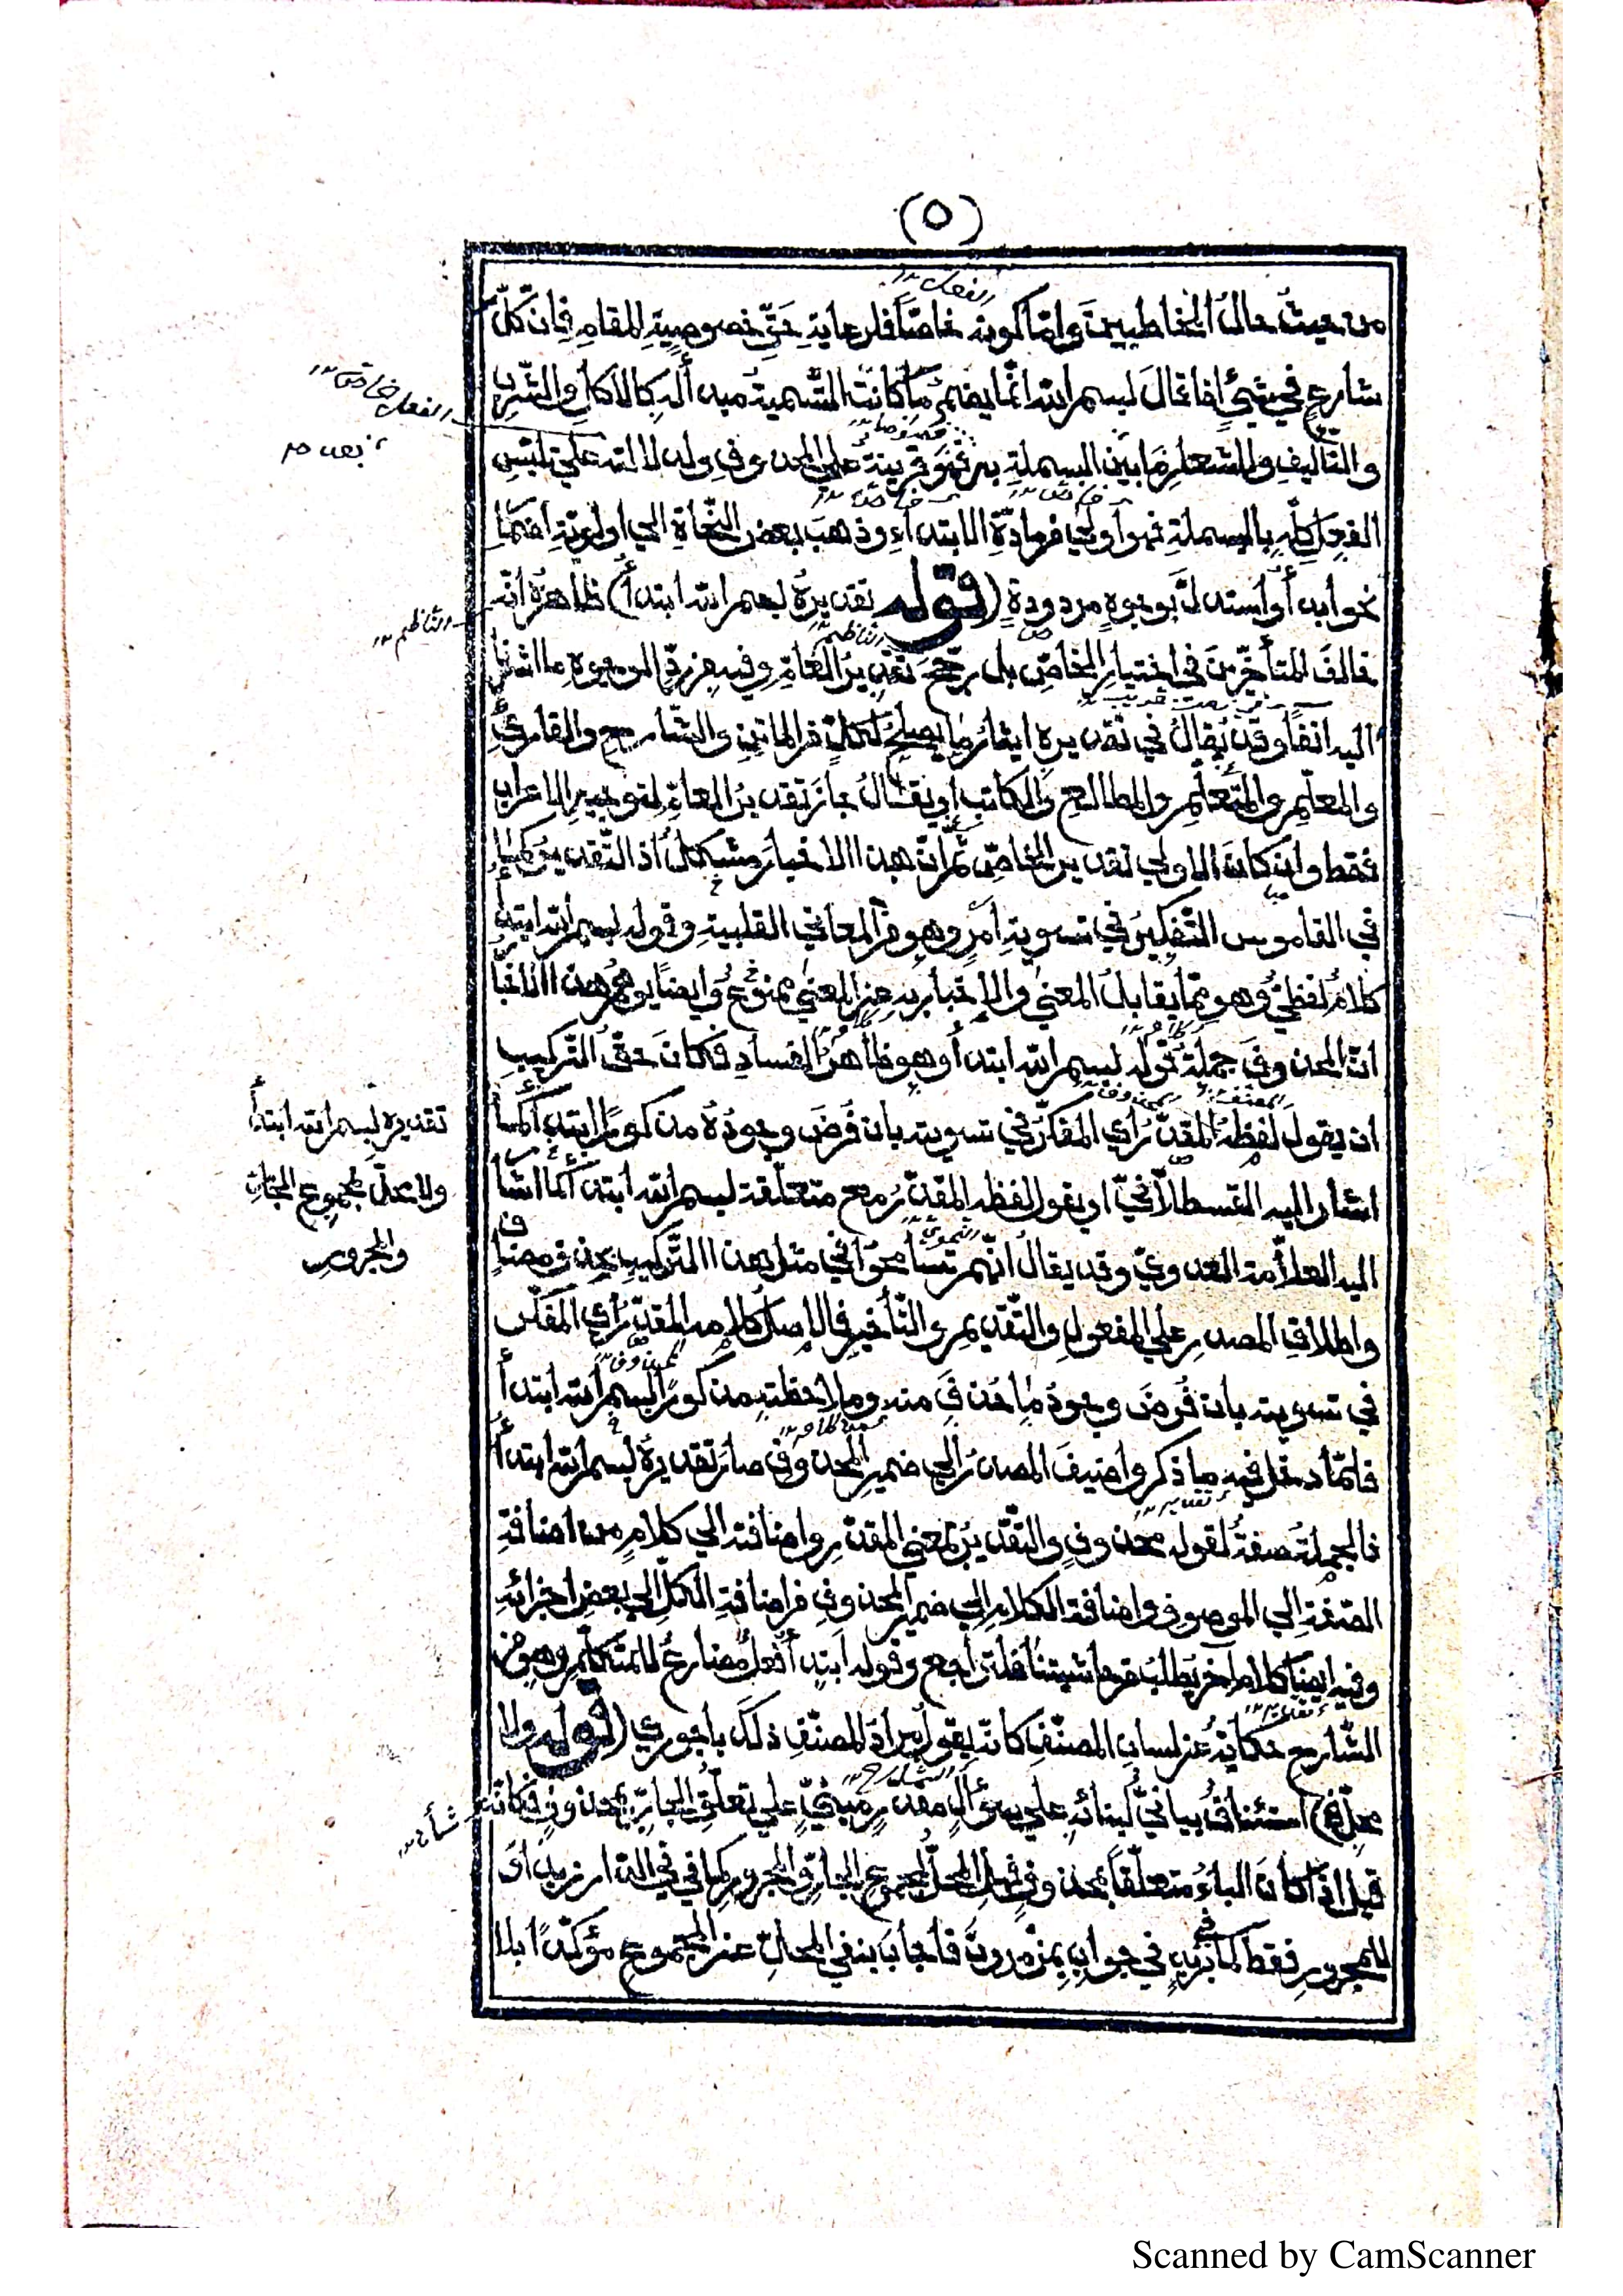 (٥)
من حيث حال المخاطبين واما كونه خاصا فلرعاية حق خصوصية المقام فان كل
شارع في شيئ اذا قال بسم الله انما يضمر ما كانت التسمية مبدأ له كالاكل والشرب
والتأليف والشعار ما بين البسملة به ثمه قرينة على المحذوف ولدلالته على تلبس
الفعل كله بالبسملة فهو اولى من مادة الابتداء وذهب بعض النحاة الى اولوية اضمار
نحو ابدأ واستدل بوجوه مردودة (قوله تقديره بسم الله ابتدأ) ظاهره انه
خالف المتأخرين في اختيار الخاص بل رجح تقدير العام وفيه من رد الوجوه ما اشرنا
اليه انفا وقد يقال في تقديره ايثار ما يصلح لكل من الماتن والشارح والقارئ
والمعلم والمتعلم والمطالع والكاتب او يقال جاز تقدير العام لتوجيه الاعراب
فقط وان كان الاولى تقدير الخاص ثم ان هذا الاخبار مشكل اذ التقدير كما
في القاموس التفكير في تسوية أمر وهو من المعاني القلبية وقوله بسم الله ابتدأ
كلام لفظي وهو مما يقابل المعنى والاخبار به عن المعنى ممنوع وايضا يوهم هذا الاخبار
ان المحذوف جملة قوله بسم الله ابتدأ وهو ظاهر الفساد فكان حق التركيب
ان يقول لفظه المقدر أي المفكر في تسويته بان فرض وجوده مذكورا ابتدأ كما
اشار اليه القسطلاني او يقول لفظه المقدر مع متعلقه بسم الله ابتدأ كما اشار
اليه العلامة العدوي وقد يقال انهم تسامحوا في مثل هذا التركيب بحذف مضاف
واطلاق المصدر على المفعول والتقديم والتأخير فالاصل كلامه المقدر أي المفكر
في تسويته بان فرض وجود ما حذف منه وملاحظته مذكورا بسم الله ابتدأ
فلما دخل فيه ما ذكر واضيف المصدر الى ضمير المحذوف صار تقديره بسم الله ابتدأ
فالجملة صفة لقوله محذوف والتقدير بمعنى المقدر واضافته الى كلام من اضافة
الصفة الى الموصوف واضافة الكلام الى ضمير المحذوف من اضافة الكل الى بعض اجزائه
وفيه ايضا كلام اخر يطلب من حاشيتنا فلتراجع وقوله ابتدأ فعل مضارع للمتكلم وهو من
الشارح حكاية عن لسان المصنف كانه يقول مراد المصنف ذلك باجوري (قوله ولا
محل) استئناف بياني لبنائه على سؤال مقدر مبني على تعلق الجار بمحذوف فكانه
قيل اذا كان الباء متعلقا بمحذوف فهل المحل لمجموع الجار والمجرور كما في في الدار زيد او
للمجرور فقط كما في بزيد في جواب بمن مررت فأجاب بنفي المحل عن المجموع مؤكدا بلا
الفعل
الفعل خاص
الناظم
تقديره بسم الله ابتدأ
ولا محل لمجموع الجار
والمجرور
شأن
Scanned by CamScanner